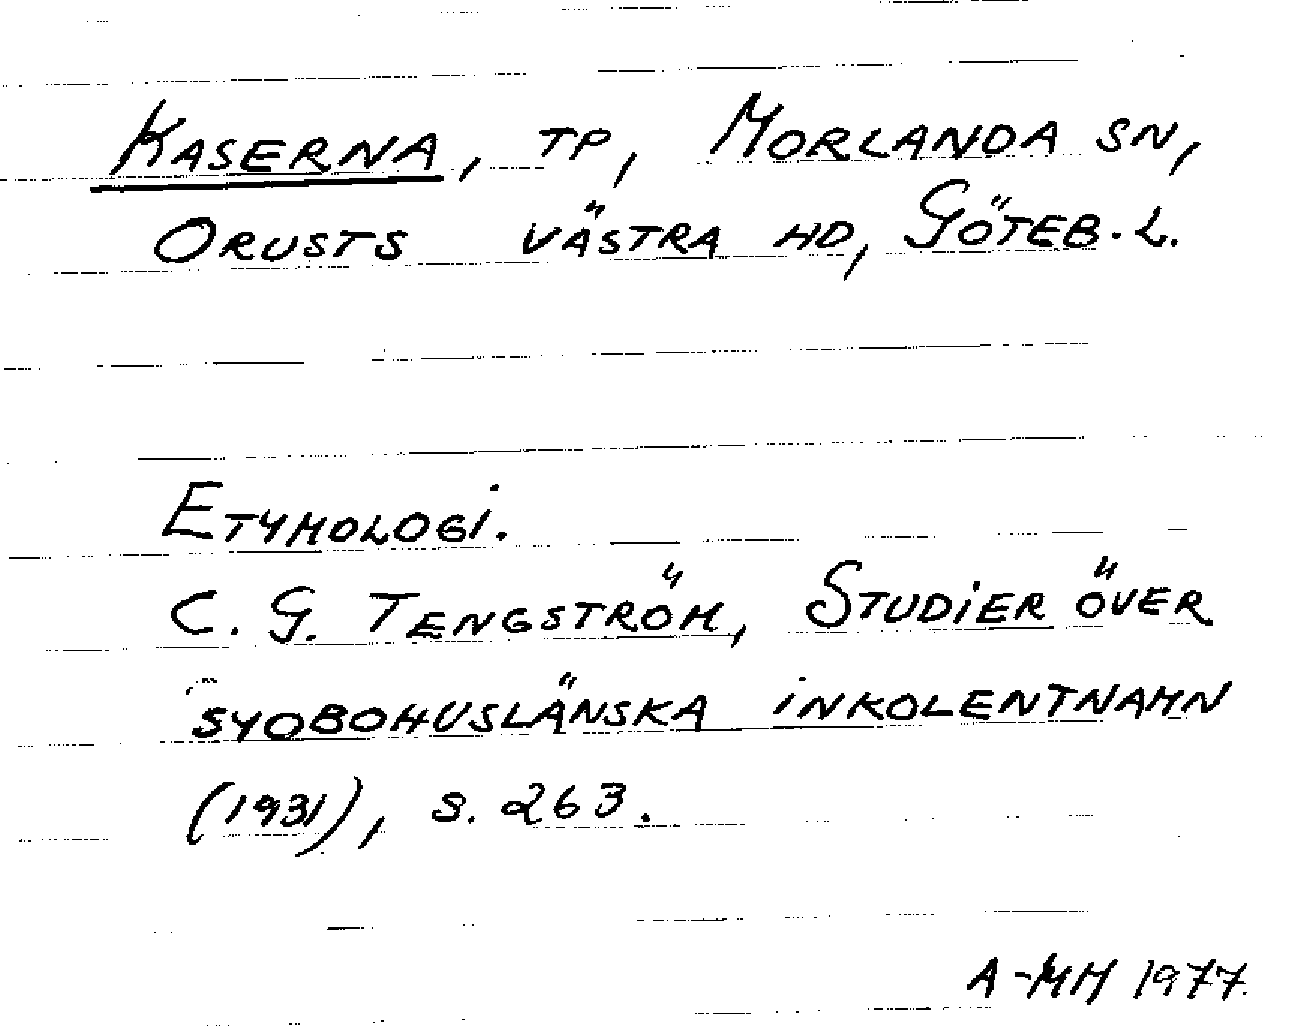 KASERNA, TP, MORLANDA SN,
ORUSTS VÄSTRA HD, GÖTEB.L.
ETYMOLOGI.
C. G. TENGSTRÖM, STUDIER ÖVER
SYDBOHUSLÄNSKA INKOLENTNAMN
(1931), S. 263.
A-MH 1977.